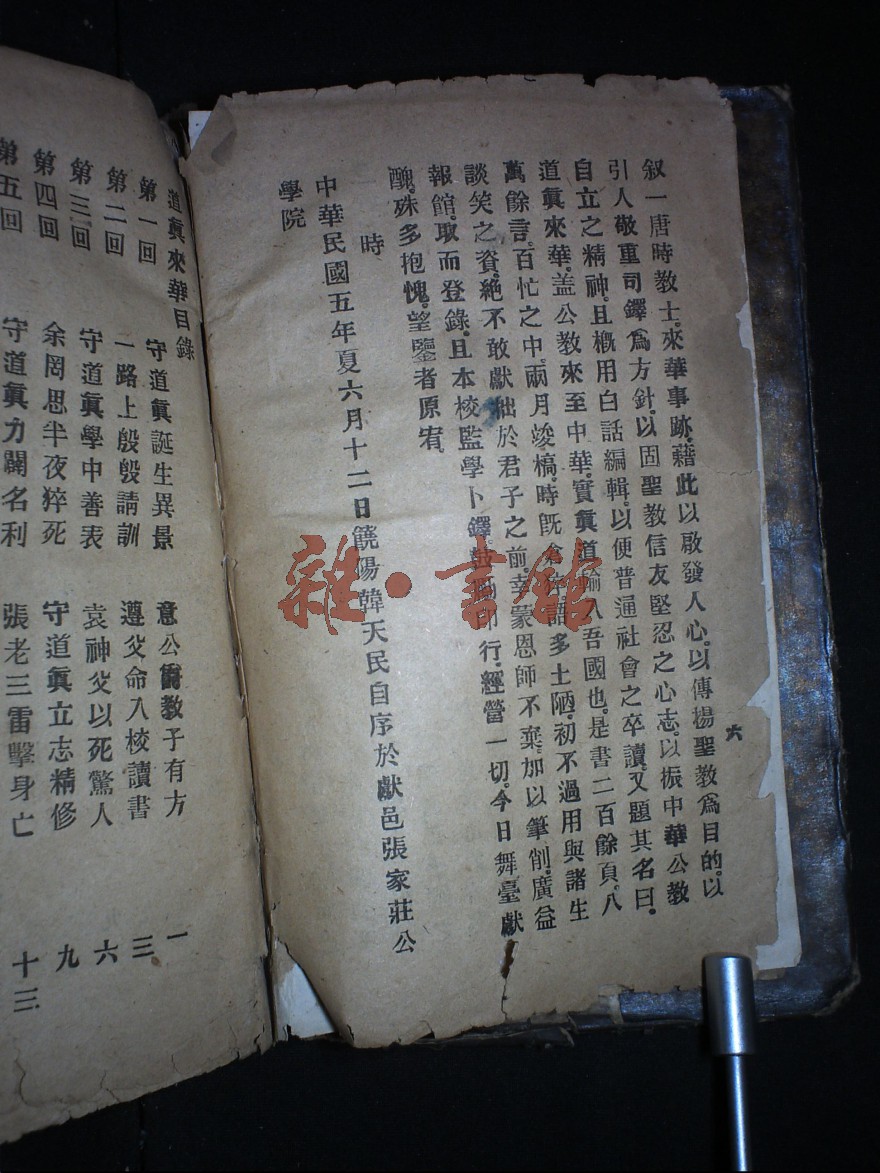 六
叙一唐時教士。來華事跡。藉此以啟發人心。以傳揚聖教爲目的。以
引人敬重司鐸爲方針。以固聖教信友堅忍之心志。以振中華公教
自立之精神。且槪用白話編輯。以便普通社會之卒讀。又題其名曰。
道眞來華。盖公教來至中華。實眞道輸入吾國也。是書二百餘頁。八
萬餘言。百忙之中。兩月竣槁。時旣倉 語多土陋。初不過用與諸生
談笑之資。絕不敢獻拙於君子之前。幸蒙恩師不棄。加以筆削。廣益
報館。取而登錄。且本校監學卜鐸。鼓 印行。經營一切。今日舞臺獻
醜。殊多抱愧。望鑒者原宥。
時
中華民國五年夏六月十二日饒陽韓天民自序於獻邑張家莊公
學院
道眞來華目錄
第一回 守道眞誕生異景 意公爵教子有方 一
第二回 一路上殷殷請訓 遵父命入校讀書 三
第三回 守道眞學中善表 袁神父以死驚人 六
第四回 余罔思半夜猝死 守道眞立志精修 九
第五回 守道眞力闢名利 張老三雷擊身亡 十三
雜·書館